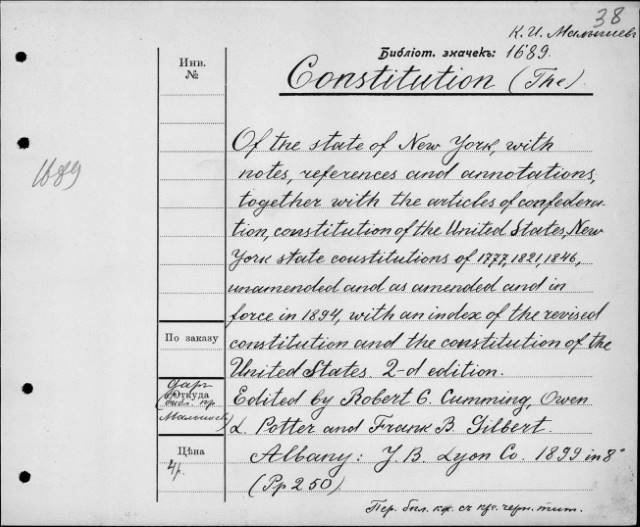 38
К. И. Малышевъ
Библіот. значекъ: 1689.
Инв.
№
Constitution (The).
1689
Of the state of New York, with
notes, references and annotations,
together with the articles of confedera-
tion, constitution of the United States, New
York state constitutions of 1777, 1821, 1846,
unamended and as amended and in
force in 1894, with an index of the revised
constitution and the constitution of the
United States. 2-d edition.
По заказу
Edited by Robert C. Cumming, Owen
L. Potter and Frank B. Gilbert.
Откуда
даръ
Малышев
Albany: J. B. Lyon Co. 1899 in 8°
(Pp 250)
Цѣна
4р.
Пер. был. съ черн. тит.